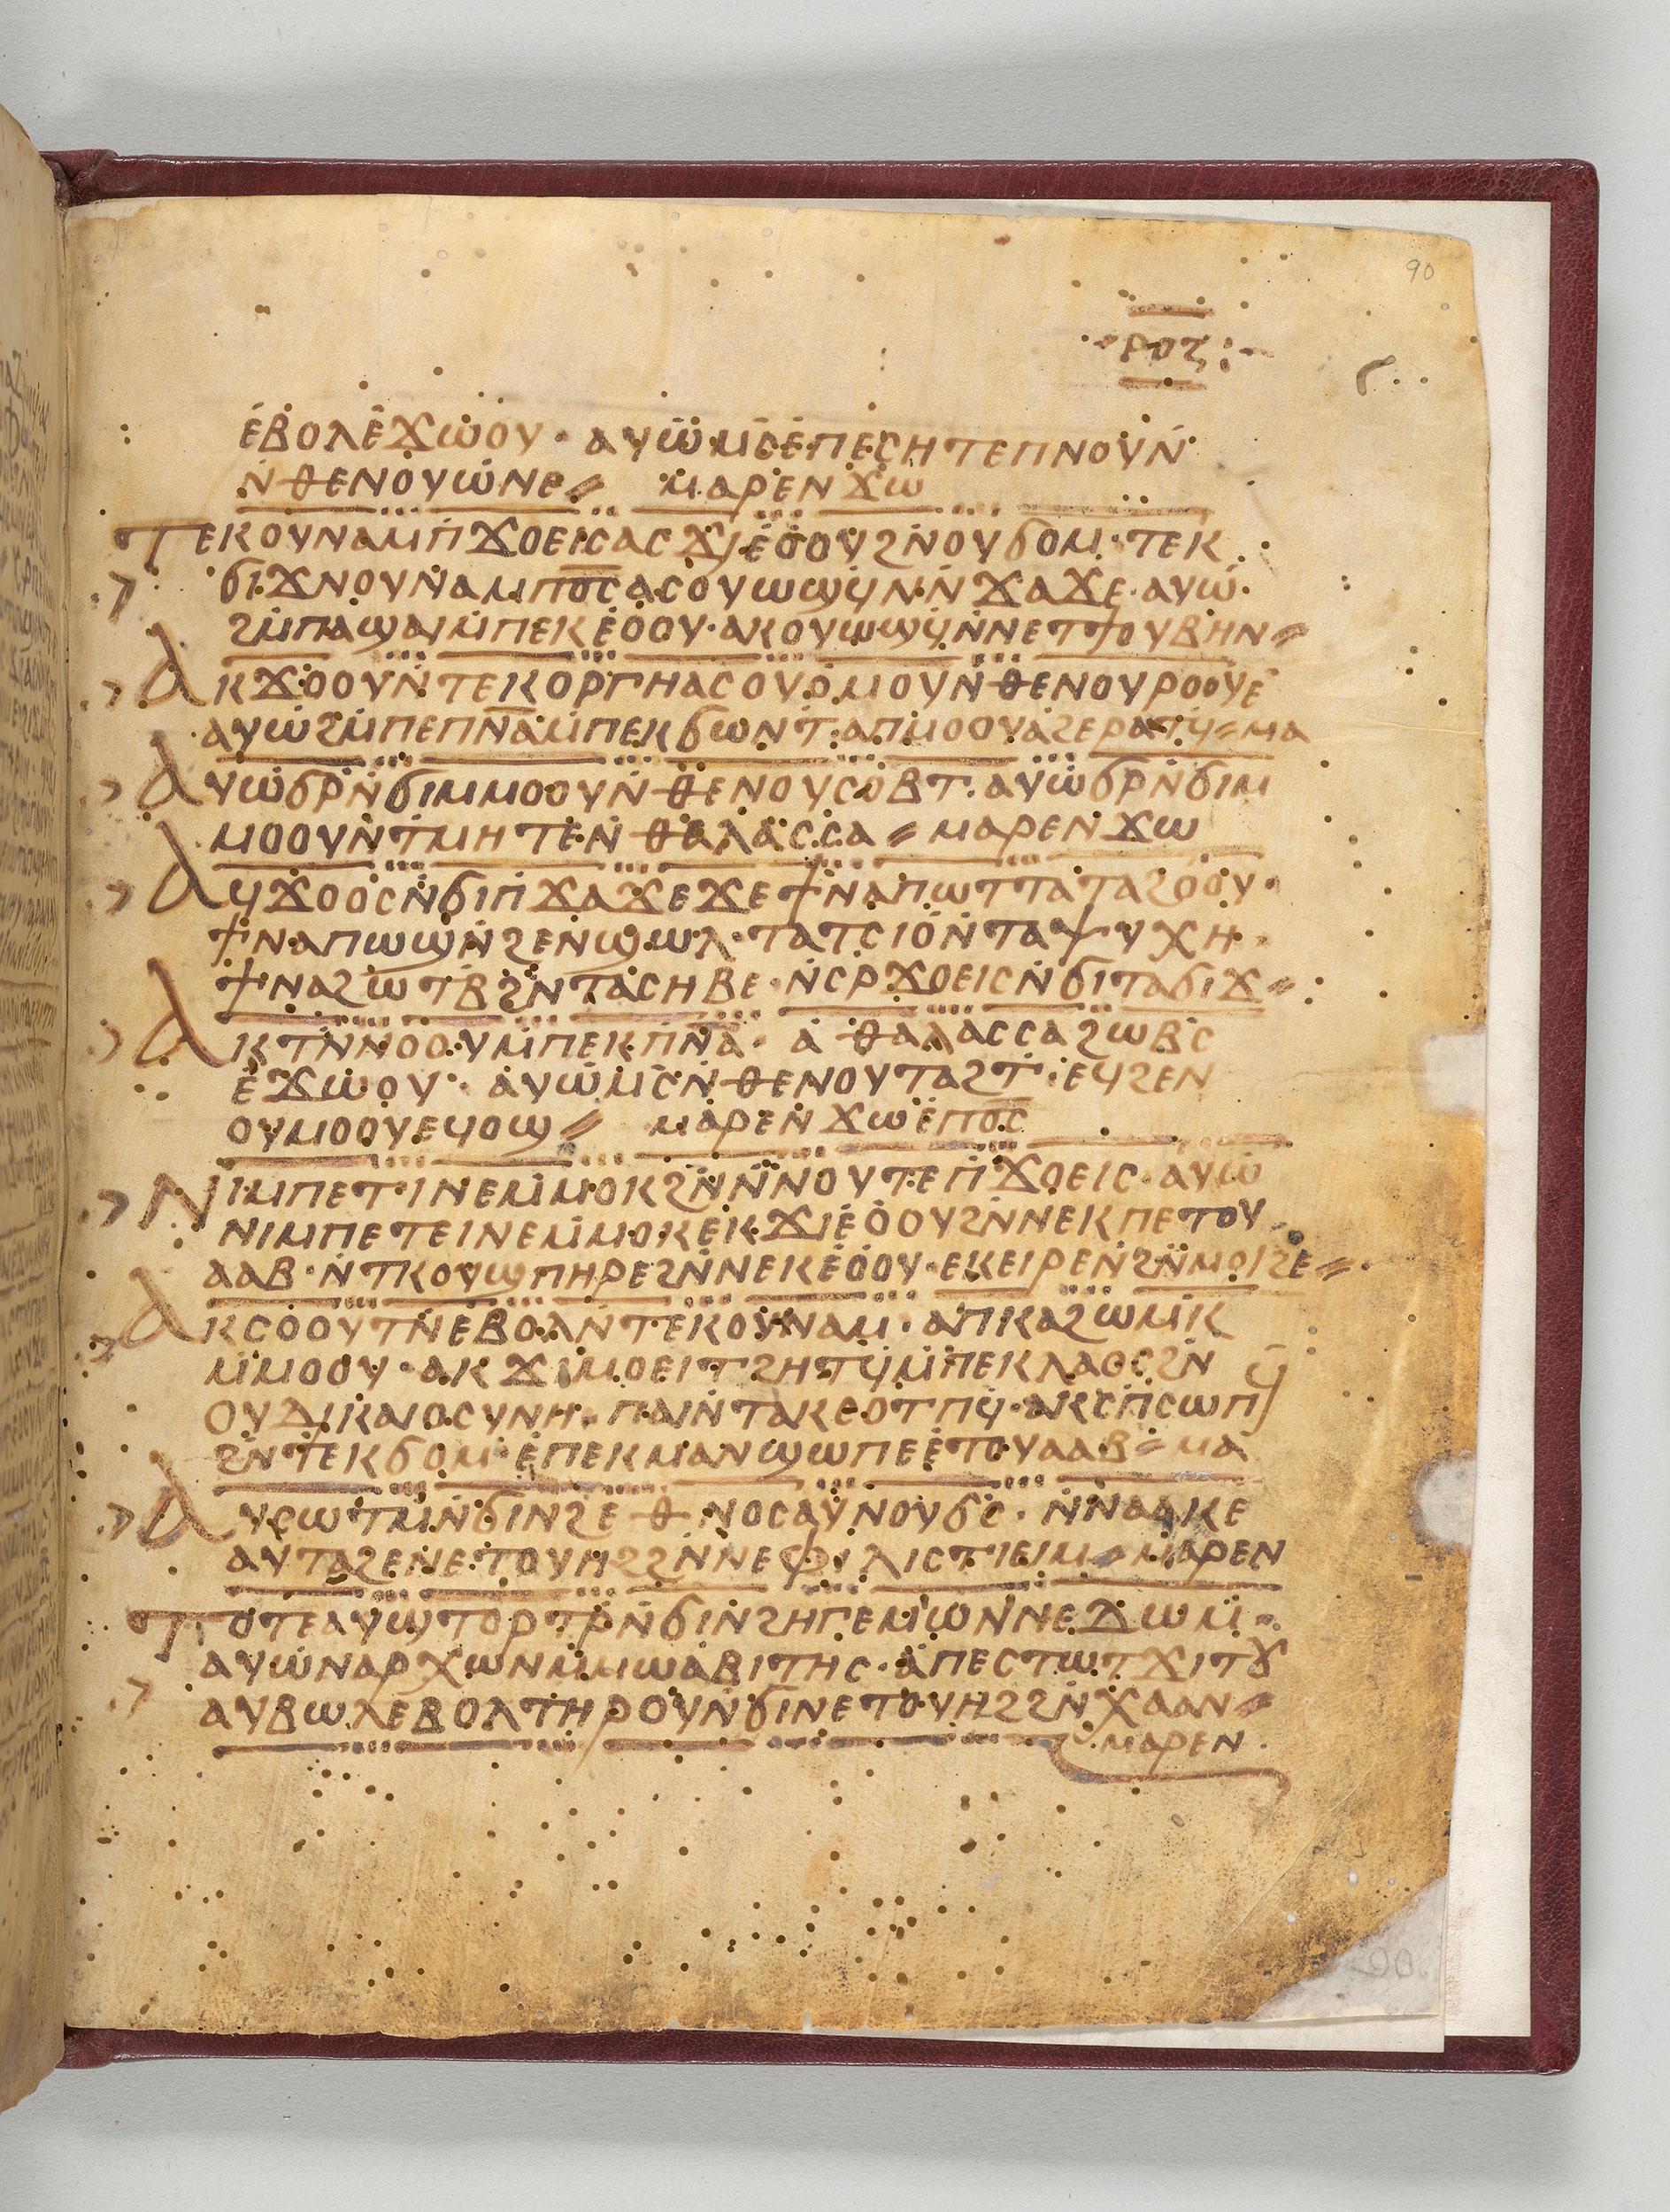 90
ⲣⲟⲍ
ⲉⲃⲟⲗⲉϫⲱⲟⲩ· ⲁⲩⲱⲙ̄ⲥⲉⲡⲉⲥⲏⲧⲉⲡⲛⲟⲩⲛ
ⲛ̀ⲑⲉⲛⲟⲩⲱⲛⲉ⸗ ⲙⲁⲣⲉⲛϫⲱ
ⲧⲉⲕⲟⲩⲛⲁⲙⲡ̀ϫⲟⲉⲓⲥⲁⲥϫⲓⲉⲟⲟⲩϩⲛⲟⲩϭⲟⲙ· ⲧⲉⲕ
ϭⲓϫⲛⲟⲩⲛⲁⲙⲡⲟ̅ⲥ̅ⲁⲥⲟⲩⲱϣϥⲛⲛ̀ϫⲁϫⲉ· ⲁⲩⲱ
ϩⲙ̀ⲡⲁϣⲁⲓⲙ̀ⲡⲉⲕⲉⲟⲟⲩ· ⲁⲕⲟⲩⲱϣϥⲛ̀ⲛⲉⲧϯⲟⲩⲃⲏⲛ⸗
ⲁⲕϫⲟⲟⲩⲛ̀ⲧⲉⲕⲟⲣⲅⲏⲁⲥⲟⲩⲟⲙⲟⲩⲛ̀ⲑⲉⲛⲟⲩⲣⲟⲟⲩⲉ
ⲁⲩⲱϩⲙ̀ⲡⲉⲡ̅ⲛ̅ⲁ̅ⲙ̀ⲡⲉⲕϭⲱⲛⲧ· ⲁⲡⲙⲟⲟⲩⲁϩⲉⲣⲁⲧϥ⸗ⲙⲁ
ⲁⲩⲱϭⲣ̀ⲛ̀ϭⲓⲙⲙⲟⲟⲩⲛ̀ⲑⲉⲛⲟⲩⲥⲟⲃⲧ· ⲁⲩⲱϭⲣ̀ⲛ̀ϭⲓⲙ
ⲙⲟⲟⲩⲛ̀ⲧⲙⲏⲧⲉⲛ̀ⲑⲁⲗⲁⲥⲥⲁ⸗ⲙⲁⲣⲉⲛϫⲱ
ⲁϥϫⲟⲟⲥⲛ̀ϭⲓⲡϫⲁϫⲉϫⲉϯⲛⲁⲡⲱⲧⲧⲁⲧⲁϩⲟⲟⲩ·
ϯⲛⲁⲡⲱϣⲛ̀ϩⲉⲛϣⲱⲗ· ⲧⲁⲧⲥⲓⲟⲛ̀ⲧⲁⲯⲩⲭⲏ·
ϯⲛⲁϩⲱⲧⲃϩⲛ̀ⲧⲁⲥⲏⲃⲉ· ⲛ̀ⲥⲣ̀ϫⲟⲉⲓⲥⲛ̀ϭⲓⲧⲁϭⲓϫ⸗
ⲁⲕⲧⲛ̀ⲛⲟⲟⲩⲙ̀ⲡⲉⲕⲡ̅ⲛ̅ⲁ̅· ⲁⲑⲁⲗⲁⲥⲥⲁϩⲱⲃⲥ
ⲉϫⲱⲟⲩ· ⲁⲩⲱⲙ̀ⲥⲛ̀ⲑⲉⲛⲟⲩⲧⲁϩⲧ· ⲉϥϩⲉⲛ
ⲟⲩⲙⲟⲟⲩⲉϥⲟϣ⸗ ⲙⲁⲣⲉⲛϫⲱⲉⲡⲟ̅ⲥ̅
ⲛⲓⲙⲡⲉⲧⲓⲛⲉⲙ̀ⲙⲟⲕϩⲛ̀ⲛ̀ⲛⲟⲩⲧⲉⲡ̀ϫⲟⲉⲓⲥ· ⲁⲩⲱ
ⲛⲓⲙⲡⲉⲧⲉⲓⲛⲉⲙ̀ⲙⲟⲕⲉⲕϫⲓⲉⲟⲟⲩϩⲛ̀ⲛⲉⲕⲡⲉⲧⲟⲩ
ⲁⲁⲃ· ⲛ̀ⲧⲕⲟⲩϣⲡⲏⲣⲉϩⲛ̀ⲛⲉⲕⲉⲟⲟⲩ· ⲉⲕⲉⲓⲣⲉⲛ̀ϩⲛ̀ⲙⲟⲓϩⲉ⸗
ⲁⲕⲥⲟⲟⲩⲧⲛ̀ⲉⲃⲟⲗⲛ̀ⲧⲉⲕⲟⲩⲛⲁⲙ· ⲁⲡⲕⲁϩⲱⲙ̀ⲕ
ⲙ̀ⲙⲟⲟⲩ· ⲁⲕϫⲓⲙⲟⲉⲓⲧϩⲏⲧϥ̀ⲙ̀ⲡⲉⲕⲗⲁⲟⲥϩⲛ̀
ⲟⲩⲇⲓⲕⲁⲓⲟⲥⲩⲛⲏ· ⲡⲁⲓⲛ̀ⲧⲁⲕⲥⲟⲧⲡϥ̀· ⲁⲕⲥⲡ̀ⲥⲱⲡϥ
ϩⲛ̀ⲧⲉⲕϭⲟⲙ· ⲉⲡⲉⲕⲙⲁⲛϣⲱⲡⲉⲉⲧⲟⲩⲁⲁⲃ⸗ⲙⲁ
ⲁⲩⲥⲱⲧⲙ̀ⲛ̀ϭⲓⲛϩⲉⲑⲛⲟⲥⲁⲩⲛⲟⲩϭⲥ̀· ⲛ̀ⲛⲁⲁⲕⲉ
ⲁⲩⲧⲁϩⲉⲛⲉⲧⲟⲩⲏϩϩⲛ̀ⲛⲉⲫⲩⲗⲓⲥⲧⲓⲉⲓⲙ⸗ⲙⲁⲣⲉⲛ
ⲧⲟⲧⲉⲁⲩϣⲧⲟⲣⲧⲣ̀ⲛ̀ϭⲓⲛϩⲏⲅⲉⲙⲱⲛⲛ̀ⲛⲉⲇⲱⲙ·
ⲁⲩⲱⲛⲁⲣⲭⲱⲛⲙ̀ⲙⲱⲁⲃⲓⲧⲏⲥ· ⲁⲡⲉⲥⲧⲱⲧϫⲓⲧⲟⲩ
ⲁⲩⲃⲱⲗⲉⲃⲟⲗⲧⲏⲣⲟⲩⲛ̀ϭⲓⲛⲉⲧⲟⲩⲏϩϩⲛ̀ⲭⲁⲁⲛ⸗
ⲙⲁⲣⲉⲛ